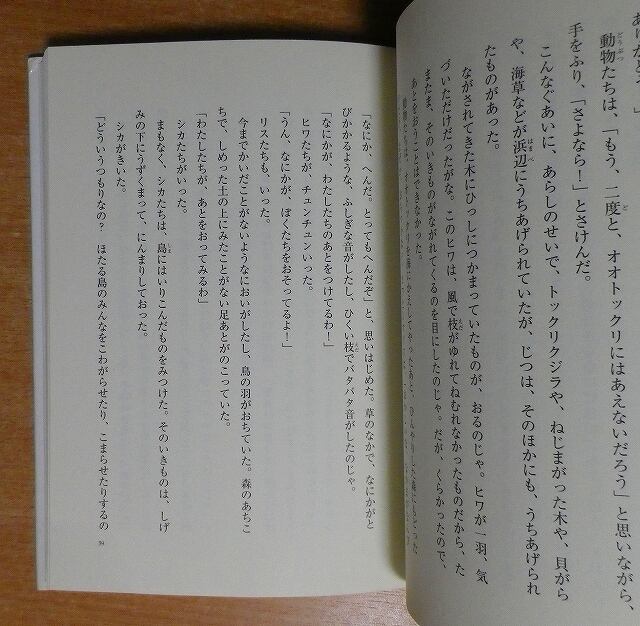 ありがとう。」
動物たちは、「もう、二度と、オオトックリにはあえないだろう」と思いながら、
手をふり、「さよなら！」とさけんだ。
こんなぐあいに、あらしのせいで、トックリクジラや、ねじまがった木や、貝がら
や、海草などが浜辺にうちあげられていたが、じつは、そのほかにも、うちあげられ
たものがあった。
ながされてきた木にひっしにつかまっていたものが、おるのじゃ。ヒワが一羽、気
づいただけだったがな。このヒワは、風で枝がゆれてねむれなかったものだから、た
またま、そのいきものがながれてくるのを目にしたのじゃ。だが、くらかったので、
あとをおうことはできなかった。
動物たちは、オオトックリを海にかえしてやったあと、
「なにか、へんだ。とってもへんだぞ」と、思いはじめた。草のなかで、なにかがと
びかかるような、ふしぎな音がしたし、ひくい枝でバタバタ音がしたのじゃ。
「なにかが、わたしたちのあとをつけてるわ！」
ヒワたちが、チュンチュンいった。
「うん、なにかが、ぼくたちをおそってるよ！」
リスたちも、いった。
今までかいだことがないようなにおいがしたし、鳥の羽がおちていた。森のあちこ
ちで、しめった土の上にみたことがない足あとがのこっていた。
「わたしたちが、あとをおってみるわ」
シカたちがいった。
まもなく、シカたちは、島にはいりこんだものをみつけた。そのいきものは、しげ
みの下にうずくまって、にんまりしておった。
シカがきいた。
「どういうつもりなの？　ほたる島のみんなをこわがらせたり、こまらせたりするの